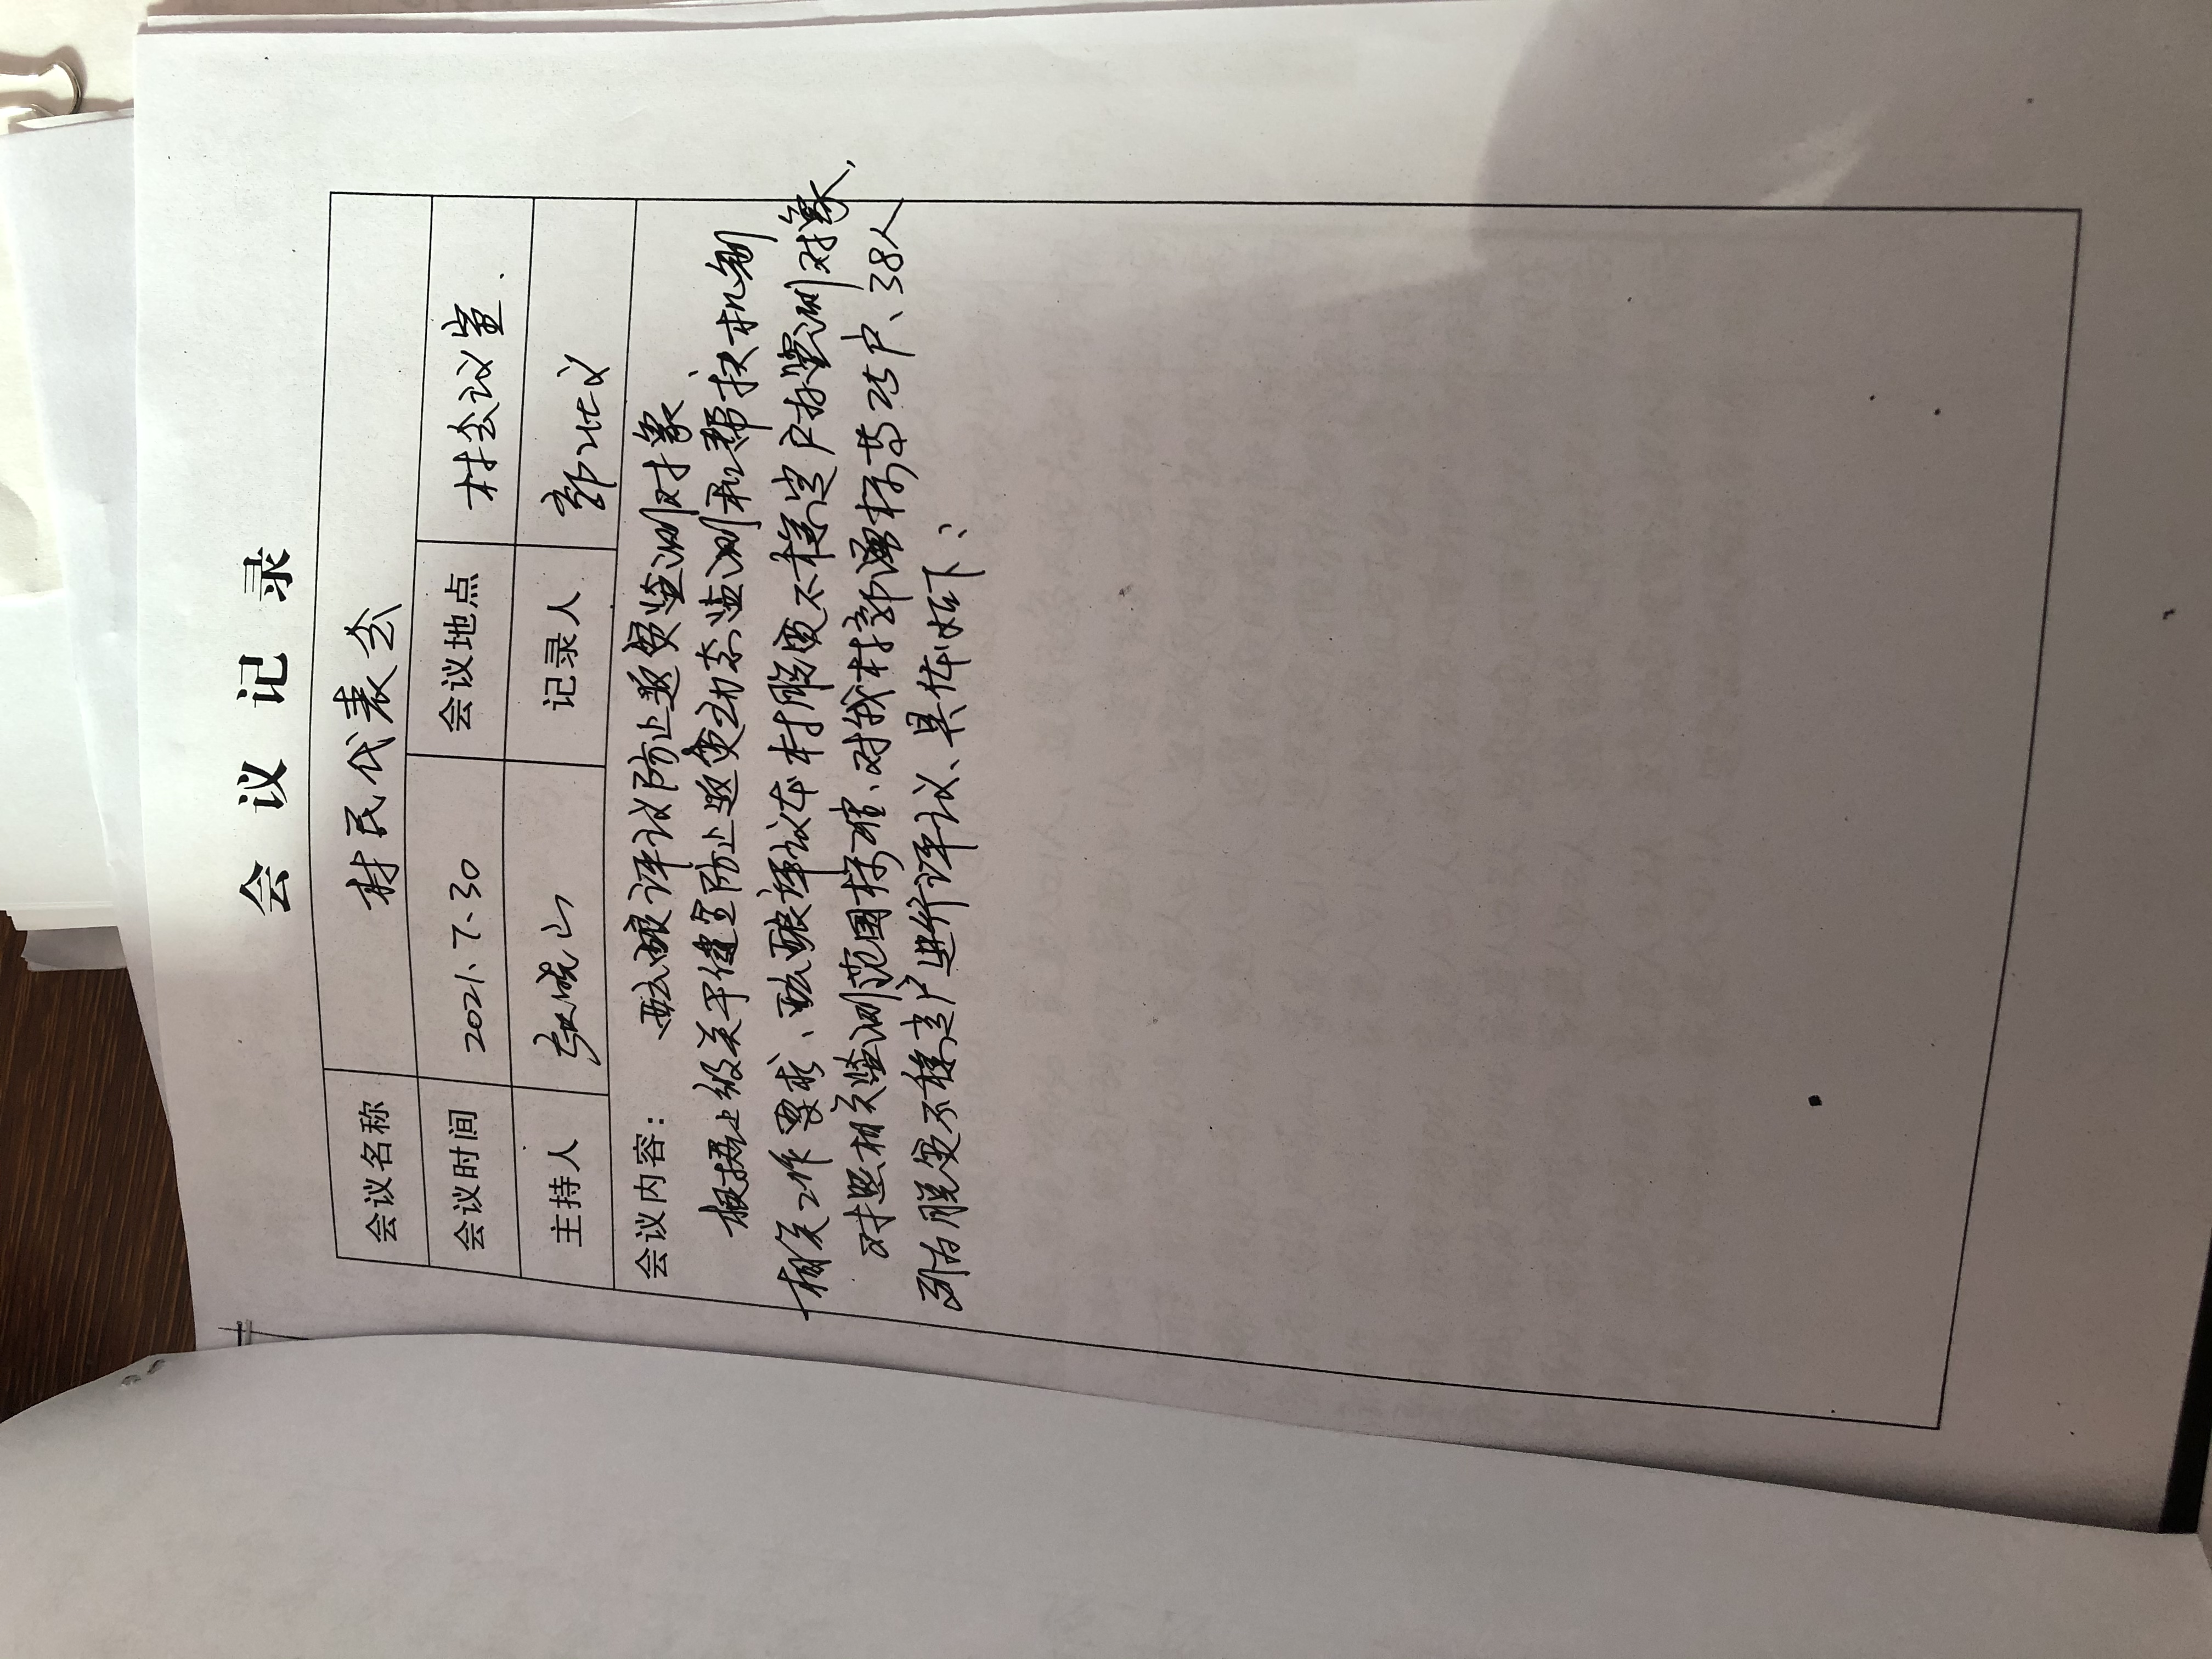 会议记录
会议名称 村民代表会
会议时间 2021.7.30 会议地点 村会议室.
主持人 山 记录人 郭
会议内容: 甄嬛评议防止返贫监测对象
根据上级关于健全防止返贫动态监测和帮扶机制
相关工作要求、评议本村脱贫不稳定户为监测对象、
对照相关监测范围标准、对我村郭 等25户、38人
列为脱贫不稳定户进行评议、具体如下: